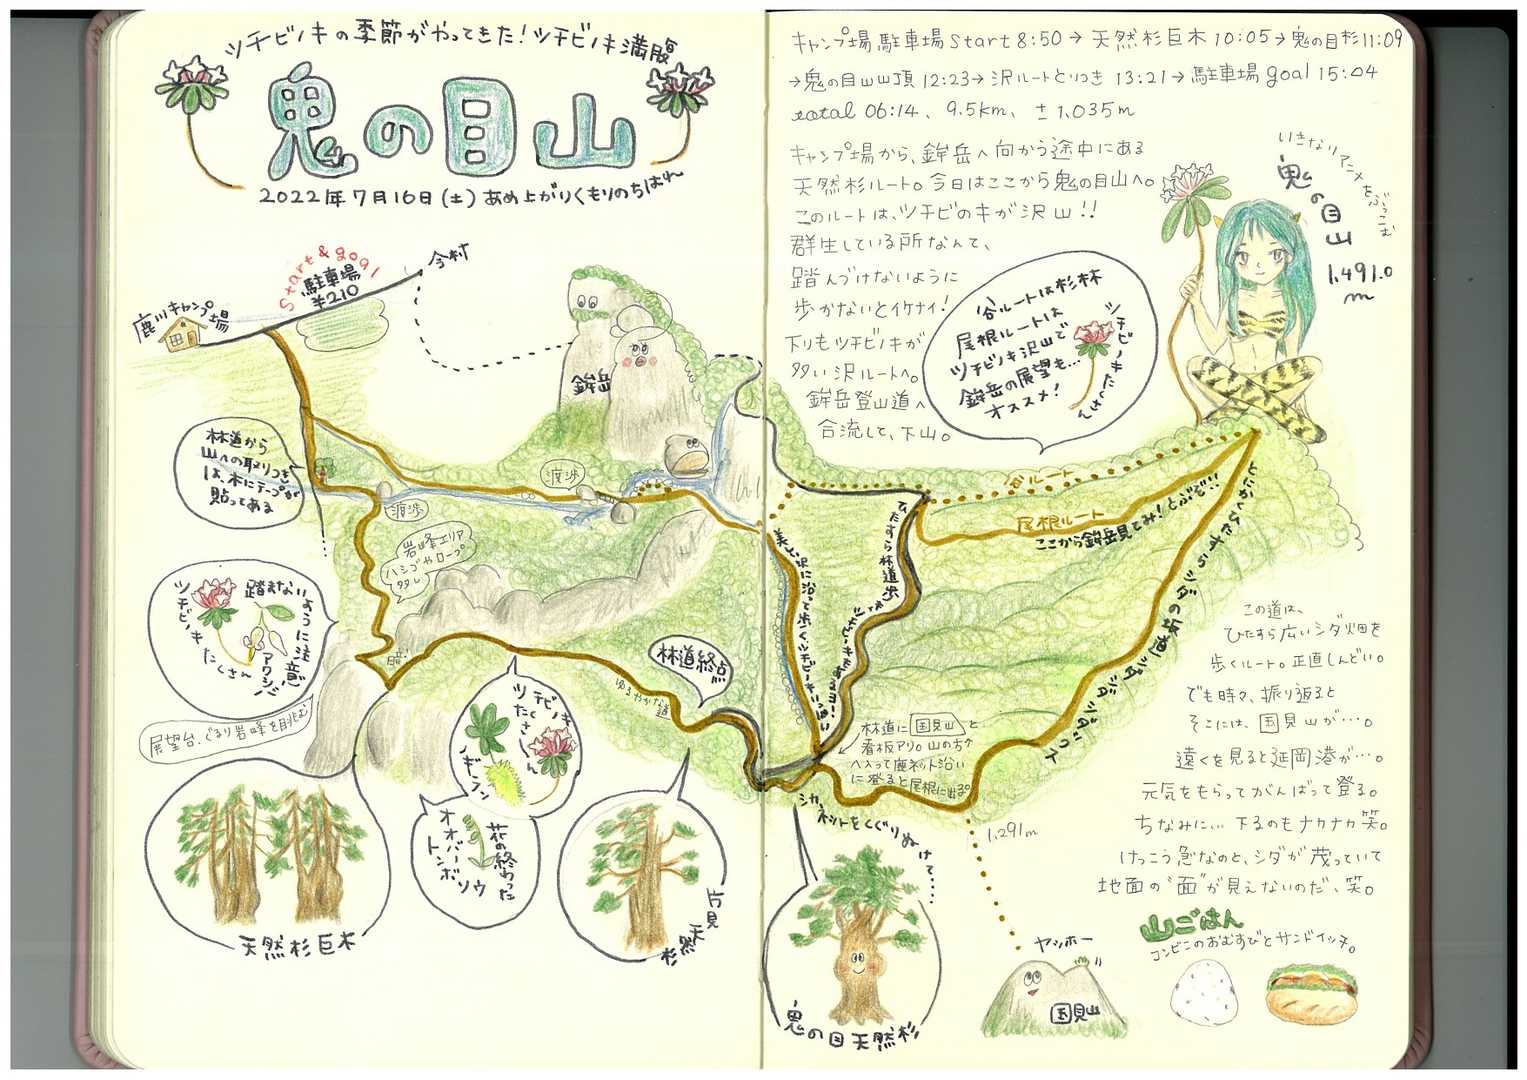 ツチビノキの季節がやってきた！ツチビノキ満腹
鬼の目山
2022年7月16日(土)あめ上がりくもりのちはれ
Start & goal
駐車場
¥210
今村
鹿川キャンプ場
鉾岳
林道から
山への取りつき
は、木にテープが
貼ってある
渡渉
渡渉
岩峰エリア
ハシゴやロープ
多し
踏まないように注意!
ツチビノキたくさん
展望台、ぐるり岩峰を眺む
林道終点
ゆるやかな道
ツチビノキ
たくさん
花の終わった
オオバノ
トンボソウ
天然杉巨木
片見
天然杉
キャンプ場 駐車場 Start 8:50→ 天然杉巨木 10:05→鬼の目杉11:09
→鬼の目山山頂 12:23→沢ルートとりつき 13:21→駐車場 goal 15:04
total 06:14、9.5km、±1,035m
キャンプ場から、鉾岳へ向かう途中にある
天然杉ルート。今日はここから鬼の目山へ。
このルートは、ツチビノキが沢山!!
群生している所なんて、
踏んづけないように
歩かないとイケナイ!
下りもツチビノキが
多い沢ルートへ。
鉾岳登山道へ
合流して、下山。
谷ルートは杉林
尾根ルートは
ツチビノキ沢山で
鉾岳の展望も…
オススメ!
ツチビノキたくさん
いきなりアニメをぶっこむ
鬼の目山
1,491.0
m
谷ルート
尾根ルート
ここから鉾岳見てみ!とぶぞ!!
とにかくひたすらシダの坂道シダシダシダッウト
ひたすら林道歩き
美しい沢に沿って歩く、ツチビノキいっぱい
林道に国見山と
看板アリ。山の方へ
入って鹿ネット沿い
に登ると尾根に出る。
シカネットをくぐりぬけて……
1,291m
この道は、
ひたすら広いシダ畑を
歩くルート。正直しんどい。
でも時々、振り返ると
そこには、国見山が…。
遠くを見ると延岡港が…。
元気をもらってがんばって登る。
ちなみに… 下るのもナカナカ笑。
けっこう急なのと、シダが茂っていて
地面の"面"が見えないのだ、笑。
山ごはん
コンビニのおむすびとサンドイッチ。
ヤッホー
国見山
鬼の目天然杉